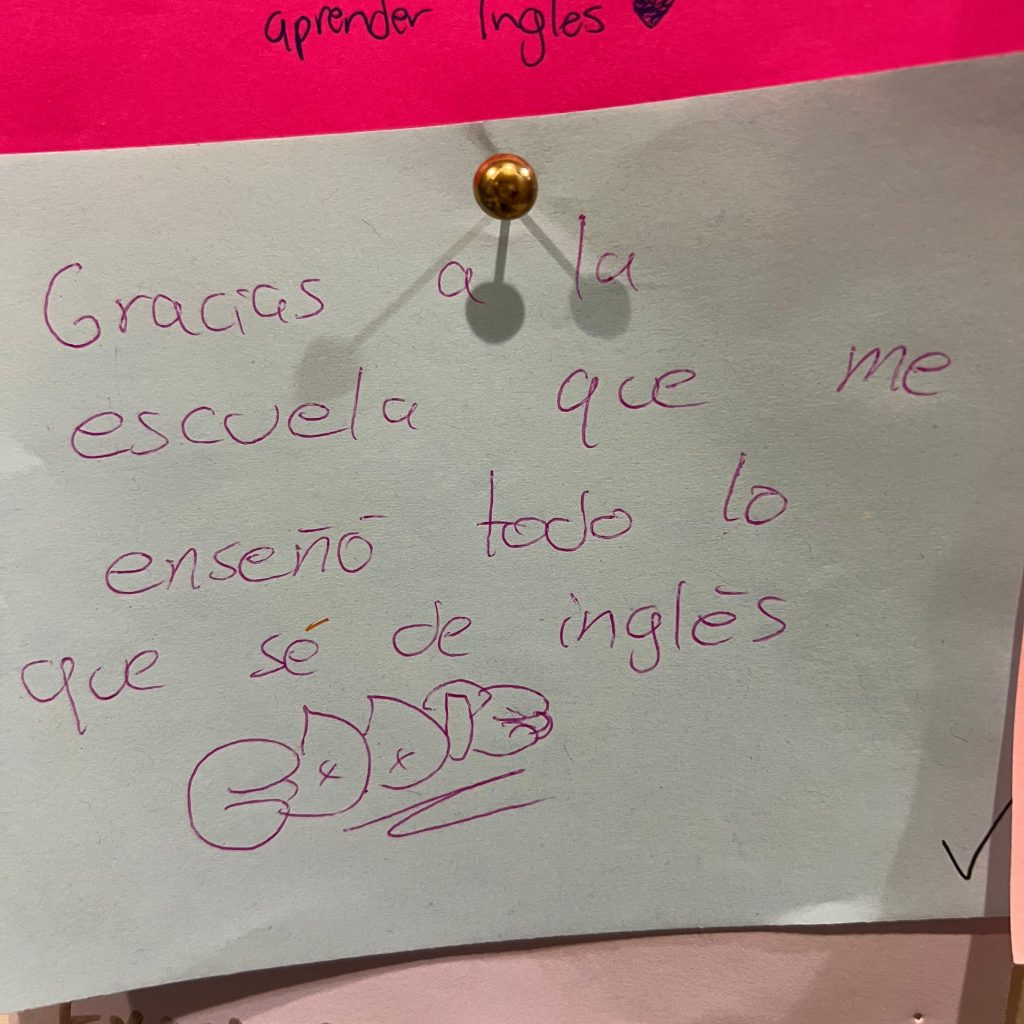 aprender Ingles
Gracias a la
escuela que me
enseñó todo lo
que sé de inglés